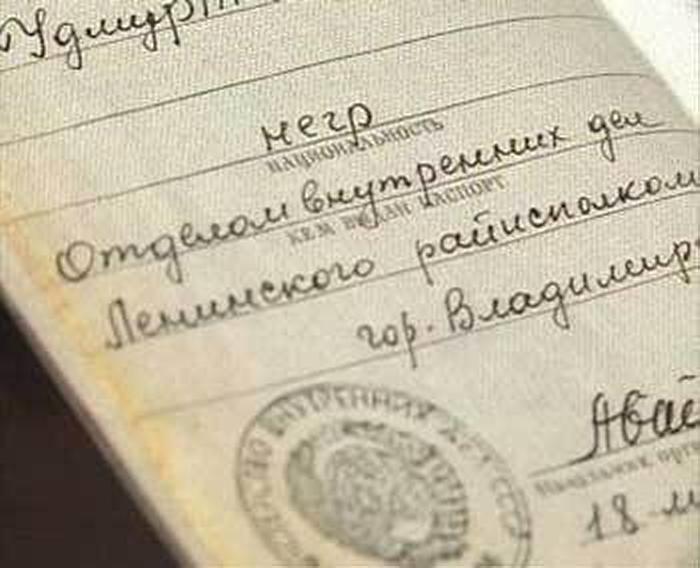 Удмурт
негр
НАЦИОНАЛЬНОСТЬ
Отделом внутренних дел
КЕМ ВЫДАН ПАСПОРТ
Ленинского райисполком
гор. Владимир
ВНУТРЕННИХ ДЕЛ СССР
Авай
Начальник орга
18 м